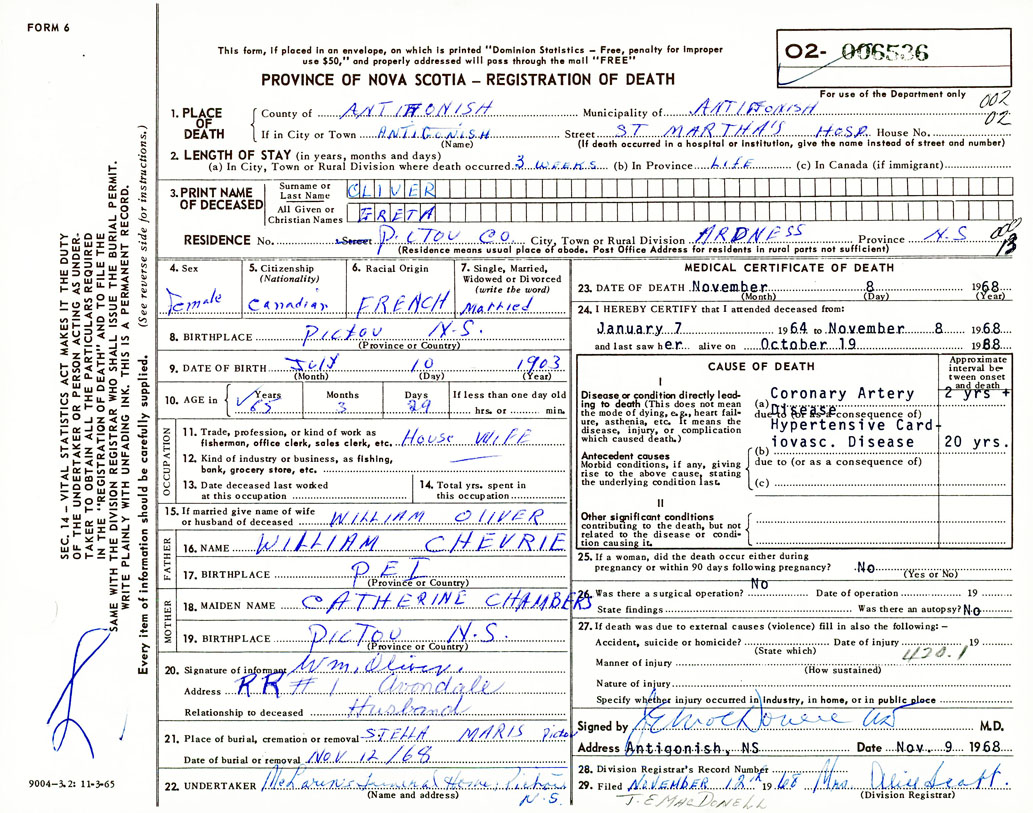 FORM 6
This form, if placed in an envelope, on which is printed "Dominion Statistics – Free, penalty for improper
use $50," and properly addressed will pass through the mail "FREE"
PROVINCE OF NOVA SCOTIA – REGISTRATION OF DEATH
02- 006536
For use of the Department only
002
02
1. PLACE OF DEATH
County of ANTIGONISH Municipality of ANTIGONISH
If in City or Town ANTIGONISH Street ST MARTHA'S HOSP. House No.
(Name) (If death occurred in a hospital or institution, give the name instead of street and number)
2. LENGTH OF STAY (in years, months and days)
(a) In City, Town or Rural Division where death occurred 3 WEEKS (b) In Province LIFE (c) In Canada (if immigrant)
3. PRINT NAME OF DECEASED
Surname or Last Name OLIVER
All Given or Christian Names GRETA
RESIDENCE No. Street PICTOU CO. City, Town or Rural Division ARDNESS Province N.S
(Residence means usual place of abode. Post Office Address for residents in rural parts not sufficient)
13
4. Sex Female
5. Citizenship (Nationality) Canadian
6. Racial Origin FRENCH
7. Single, Married, Widowed or Divorced (write the word) Married
8. BIRTHPLACE PICTOU N.S.
(Province or Country)
9. DATE OF BIRTH JULY 10 1903
(Month) (Day) (Year)
10. AGE in Years 65 Months 3 Days 29 If less than one day old hrs. or min.
OCCUPATION
11. Trade, profession, or kind of work as
fisherman, office clerk, sales clerk, etc. HOUSE WIFE
12. Kind of industry or business, as fishing,
bank, grocery store, etc.
13. Date deceased last worked
at this occupation
14. Total yrs. spent in
this occupation
15. If married give name of wife
or husband of deceased WILLIAM OLIVER
FATHER
16. NAME WILLIAM CHEVRIE
17. BIRTHPLACE PEI
(Province or Country)
MOTHER
18. MAIDEN NAME CATHERINE CHAMBERS
19. BIRTHPLACE PICTOU N.S.
(Province or Country)
20. Signature of informant Wm. Oliver.
Address RR #1 Avondale
Relationship to deceased Husband
21. Place of burial, cremation or removal STELLA MARIS Pictou
Date of burial or removal NOV 12/68
22. UNDERTAKER McLaren's Funeral Home, Pictou
(Name and address) N.S.
MEDICAL CERTIFICATE OF DEATH
23. DATE OF DEATH November 8 1968
(Month) (Day) (Year)
24. I HEREBY CERTIFY that I attended deceased from:
January 7 1964 to November 8 1968
and last saw her alive on October 19 1968
CAUSE OF DEATH
Approximate interval between onset and death
I
Disease or condition directly leading to death (This does not mean the mode of dying, e.g., heart failure, asthenia, etc. It means the disease, injury, or complication which caused death.)
(a) Coronary Artery Disease 2 yrs +
due to (or as a consequence of)
Antecedent causes
Morbid conditions, if any, giving rise to the above cause, stating the underlying condition last.
(b) Hypertensive Cardiovasc. Disease 20 yrs.
due to (or as a consequence of)
(c)
II
Other significant conditions
contributing to the death, but not related to the disease or condition causing it.
25. If a woman, did the death occur either during
pregnancy or within 90 days following pregnancy? No
(Yes or No)
26. Was there a surgical operation? No Date of operation 19
State findings Was there an autopsy? No
27. If death was due to external causes (violence) fill in also the following: –
Accident, suicide or homicide? Date of injury 19
(State which) 420.1
Manner of injury
(How sustained)
Nature of injury
Specify whether injury occurred in industry, in home, or in public place
Signed by M.D.
Address Antigonish, NS Date Nov. 9 1968
28. Division Registrar's Record Number
29. Filed NOVEMBER 12th 1968 Mrs Alice Scott.
(Division Registrar)
J. E MACDONELL
SEC. 14 – VITAL STATISTICS ACT MAKES IT THE DUTY
OF THE UNDERTAKER OR PERSON ACTING AS UNDER-
TAKER TO OBTAIN ALL THE PARTICULARS REQUIRED
IN THE "REGISTRATION OF DEATH" AND TO FILE THE
SAME WITH THE DIVISION REGISTRAR WHO SHALL ISSUE THE BURIAL PERMIT.
WRITE PLAINLY WITH UNFADING INK. THIS IS A PERMANENT RECORD.
Every item of information should be carefully supplied. (See reverse side for instructions.)
9004–3.2: 11-3-65